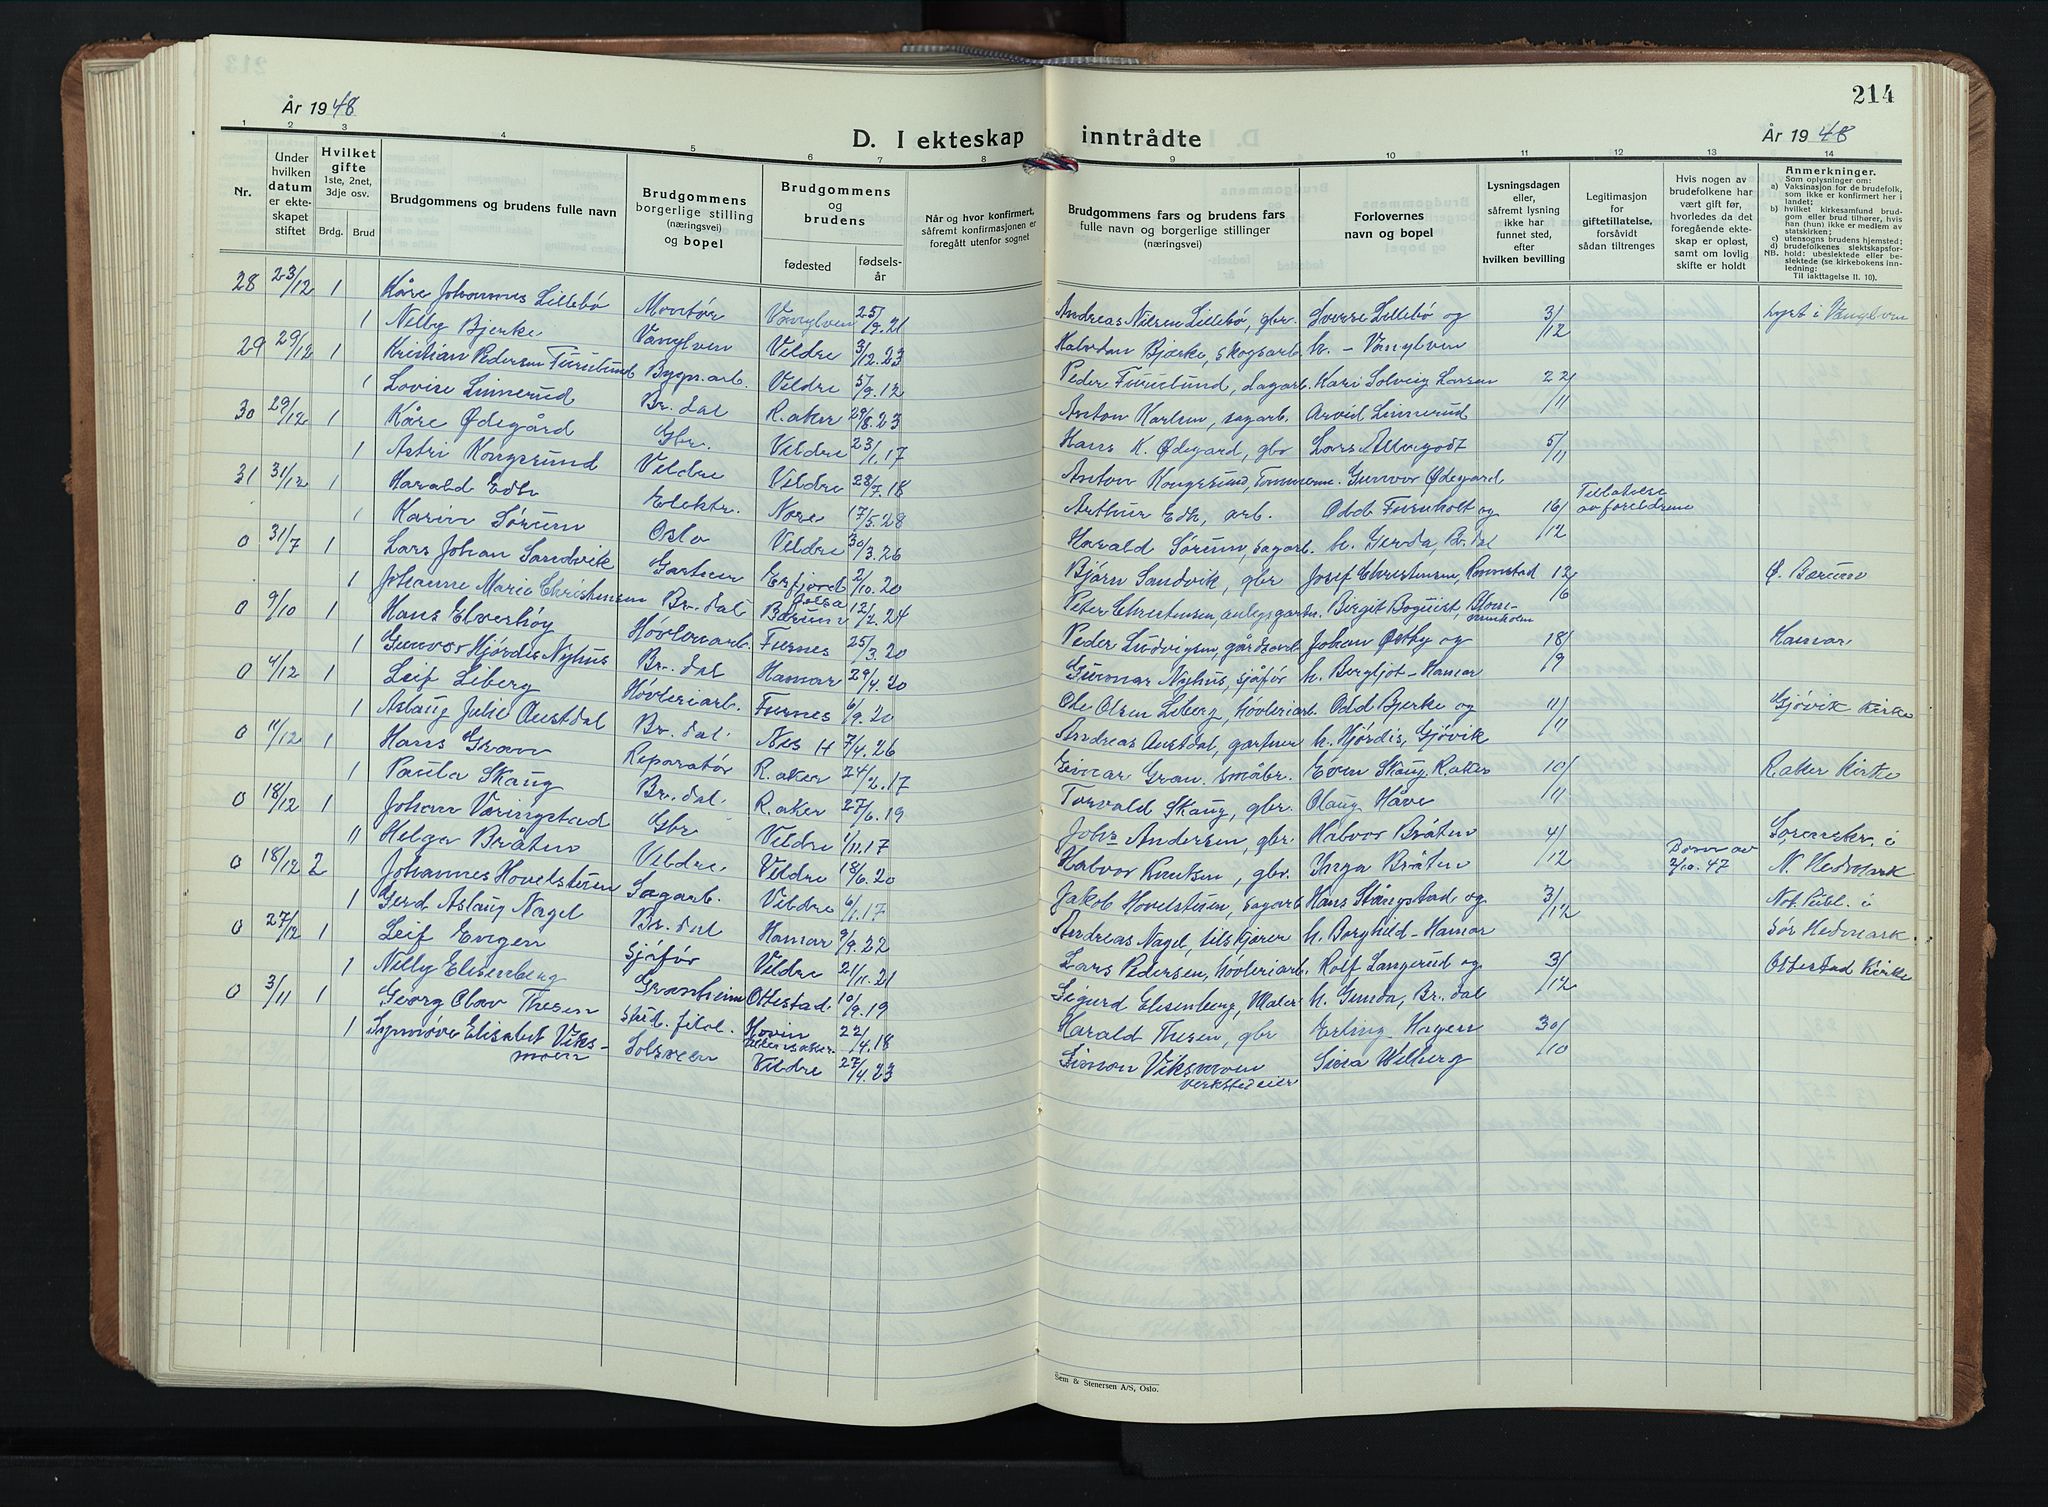 214
År 1948
D. I ekteskap inntrådte
År 1948
1 2 3 4 5 6 7 8 9 10 11 12 13 14
Nr.
Under hvilken datum er ekteskapet stiftet
Hvilket gifte 1ste, 2net, 3dje osv.
Brdg. Brud
Brudgommens og brudens fulle navn
Brudgommens borgerlige stilling (næringsvei) og bopel
Brudgommens og brudens
fødested
fødselsår
Når og hvor konfirmert, såfremt konfirmasjonen er foregått utenfor sognet
Brudgommens fars og brudens fars fulle navn og borgerlige stillinger (næringsvei)
Forlovernes navn og bopel
Lysningsdagen eller, såfremt lysning ikke har funnet sted, efter hvilken bevilling
Legitimasjon for giftetillatelse, forsåvidt sådan tiltrenges
Hvis nogen av brudefolkene har vært gift før, hvorledes da det foregående ekteskap er opløst, samt om lovlig skifte er holdt
Anmerkninger.
Som oplysninger om:
a) Vaksinasjon for de brudefolk, som ikke er konfirmert her i landet;
b) hvilket kirkesamfund brudgom eller brud tilhører, hvis han (hun) ikke er medlem av statskirken;
c) utensogns brudens hjemsted;
d) brudefolkenes slektskapsforhold: ubeslektede eller beslektede (se kirkebokens innledning:
NB. Til iakttagelse II. 10).
28 23/12 1 Kåre Johannes Lillebø Montør Vanylven 25/9.21 Andreas Nilsen Lillebø, gbr. Sverre Lillebø og 3/12 Lyst i Vanylven
1 Nelly Bjerke Vanylven Veldre 3/12.23 Halvdan Bjerke, skogsarb. h. – Vanylven
29 29/12 1 Kristian Pedersen Furulund Bygn.arb. Veldre 5/9.12 Peder Furulund, sagarb. Kari Solveig Larsen 22/11
1 Lovise Linnerud Br.dal R.aker 29/8.23 Anton Karlsen, sagarb. Arvid Linnerud
30 29/12 1 Kåre Ødegård Gbr. Veldre 23/1.17 Hans K. Ødegard, gbr Lars Allergodt 5/11
1 Astri Kongsrund Veldre Veldre 23/7.18 Anton Kongsrund, Tømmerm. Gunvor Ødegard
31 31/12 1 Harald Edh Elektr. Nore 17/5.28 Arthur Edh, arb. Odd Furuholt og 16/12 Tillatelse av foreldrene
1 Karin Sørum Oslo Veldre 30/3.26 Harald Sørum, sagarb. h. Gerda, Br.dal
0 31/7 1 Lars Johan Sandvik Gartner Erfjord Jelsa 2/10.20 Bjørn Sandvik, gbr Josef Christensen, 12/6 Ø. Bærum
1 Johanne Marie Christensen Br.dal Bærum 12/2.24 Peter Christensen, anlegsgartn. Birgit Boquist,
0 9/10 1 Hans Elverhøy Høvleriarb. Furnes 25/3.20 Peder Ludvigsen, gårdsarb. Johan Østby og 18/9 Hamar
1 Gunvor Hjørdis Nyhus Br.dal Hamar 29/4.20 Gunnar Nyhus, sjåfør h. Bergljot – Hamar
0 4/12 1 Leif Liberg Høvleriarb. Furnes 6/9.20 Ole Olsen Liberg, høvleriarb. Odd Bjerke og 11/11 Gjøvik Kirke
1 Aslaug Julie Austdal Br.dal. Nes H 7/4.26 Andreas Austdal, gartner h. Hjørdis, Gjøvik
0 11/12 1 Hans Gran Reparatør R.aker 24/2.17 Einar Gran, småbr. Even Skaug, R.aker 10/11 R.aker Kirke
1 Paula Skaug Br.dal. R.aker 27/6.19 Torvald Skaug, gbr. Olaug Håve
0 18/12 1 Johan Væringstad Gbr Veldre 1/11.17 Johs Andersen, gbr. Halvor Bråten 4/12 Sorenskr. i
11 Helga Bråten Veldre. Veldre 18/6.20 Halvor Knutsen, gbr. Inga Bråten N. Hedmark
0 18/12 2 Johannes Hovelsteen Sagarb. Veldre 6/1.17 Jakob Hovelsteen, sagarb Hans Stångstad og 3/12 Dom av 2/10.47 Not. Publ. i
1 Gerd Aslaug Nagel Br.dal Hamar 9/9.22 Andreas Nagel, tilskjærer h. Borghild – Hamar Sør Hedmark.
0 27/12 1 Leif Engen Sjåfør Veldre 21/11.21 Lars Pedersen, høvleriarb. Rolf Langerud og 3/12 Ottestad Kirke
1 Nelly Elisenberg Granheim Ottestad 10/9.19 Sigurd Elisenberg, Maler h. Gunda, Br.dal
0 3/11 1 Georg Olav Thesen Stud. filol. Hovin Ullensaker 22/4.18 Harald Thesen, gbr Erling Hagen 30/10
1 Synnøve Elisabet Viksmoen Solveen Veldre 27/4.23 Simon Viksmoen verkstedeier Siva Wilberg
Sem & Stenersen A/S, Oslo.